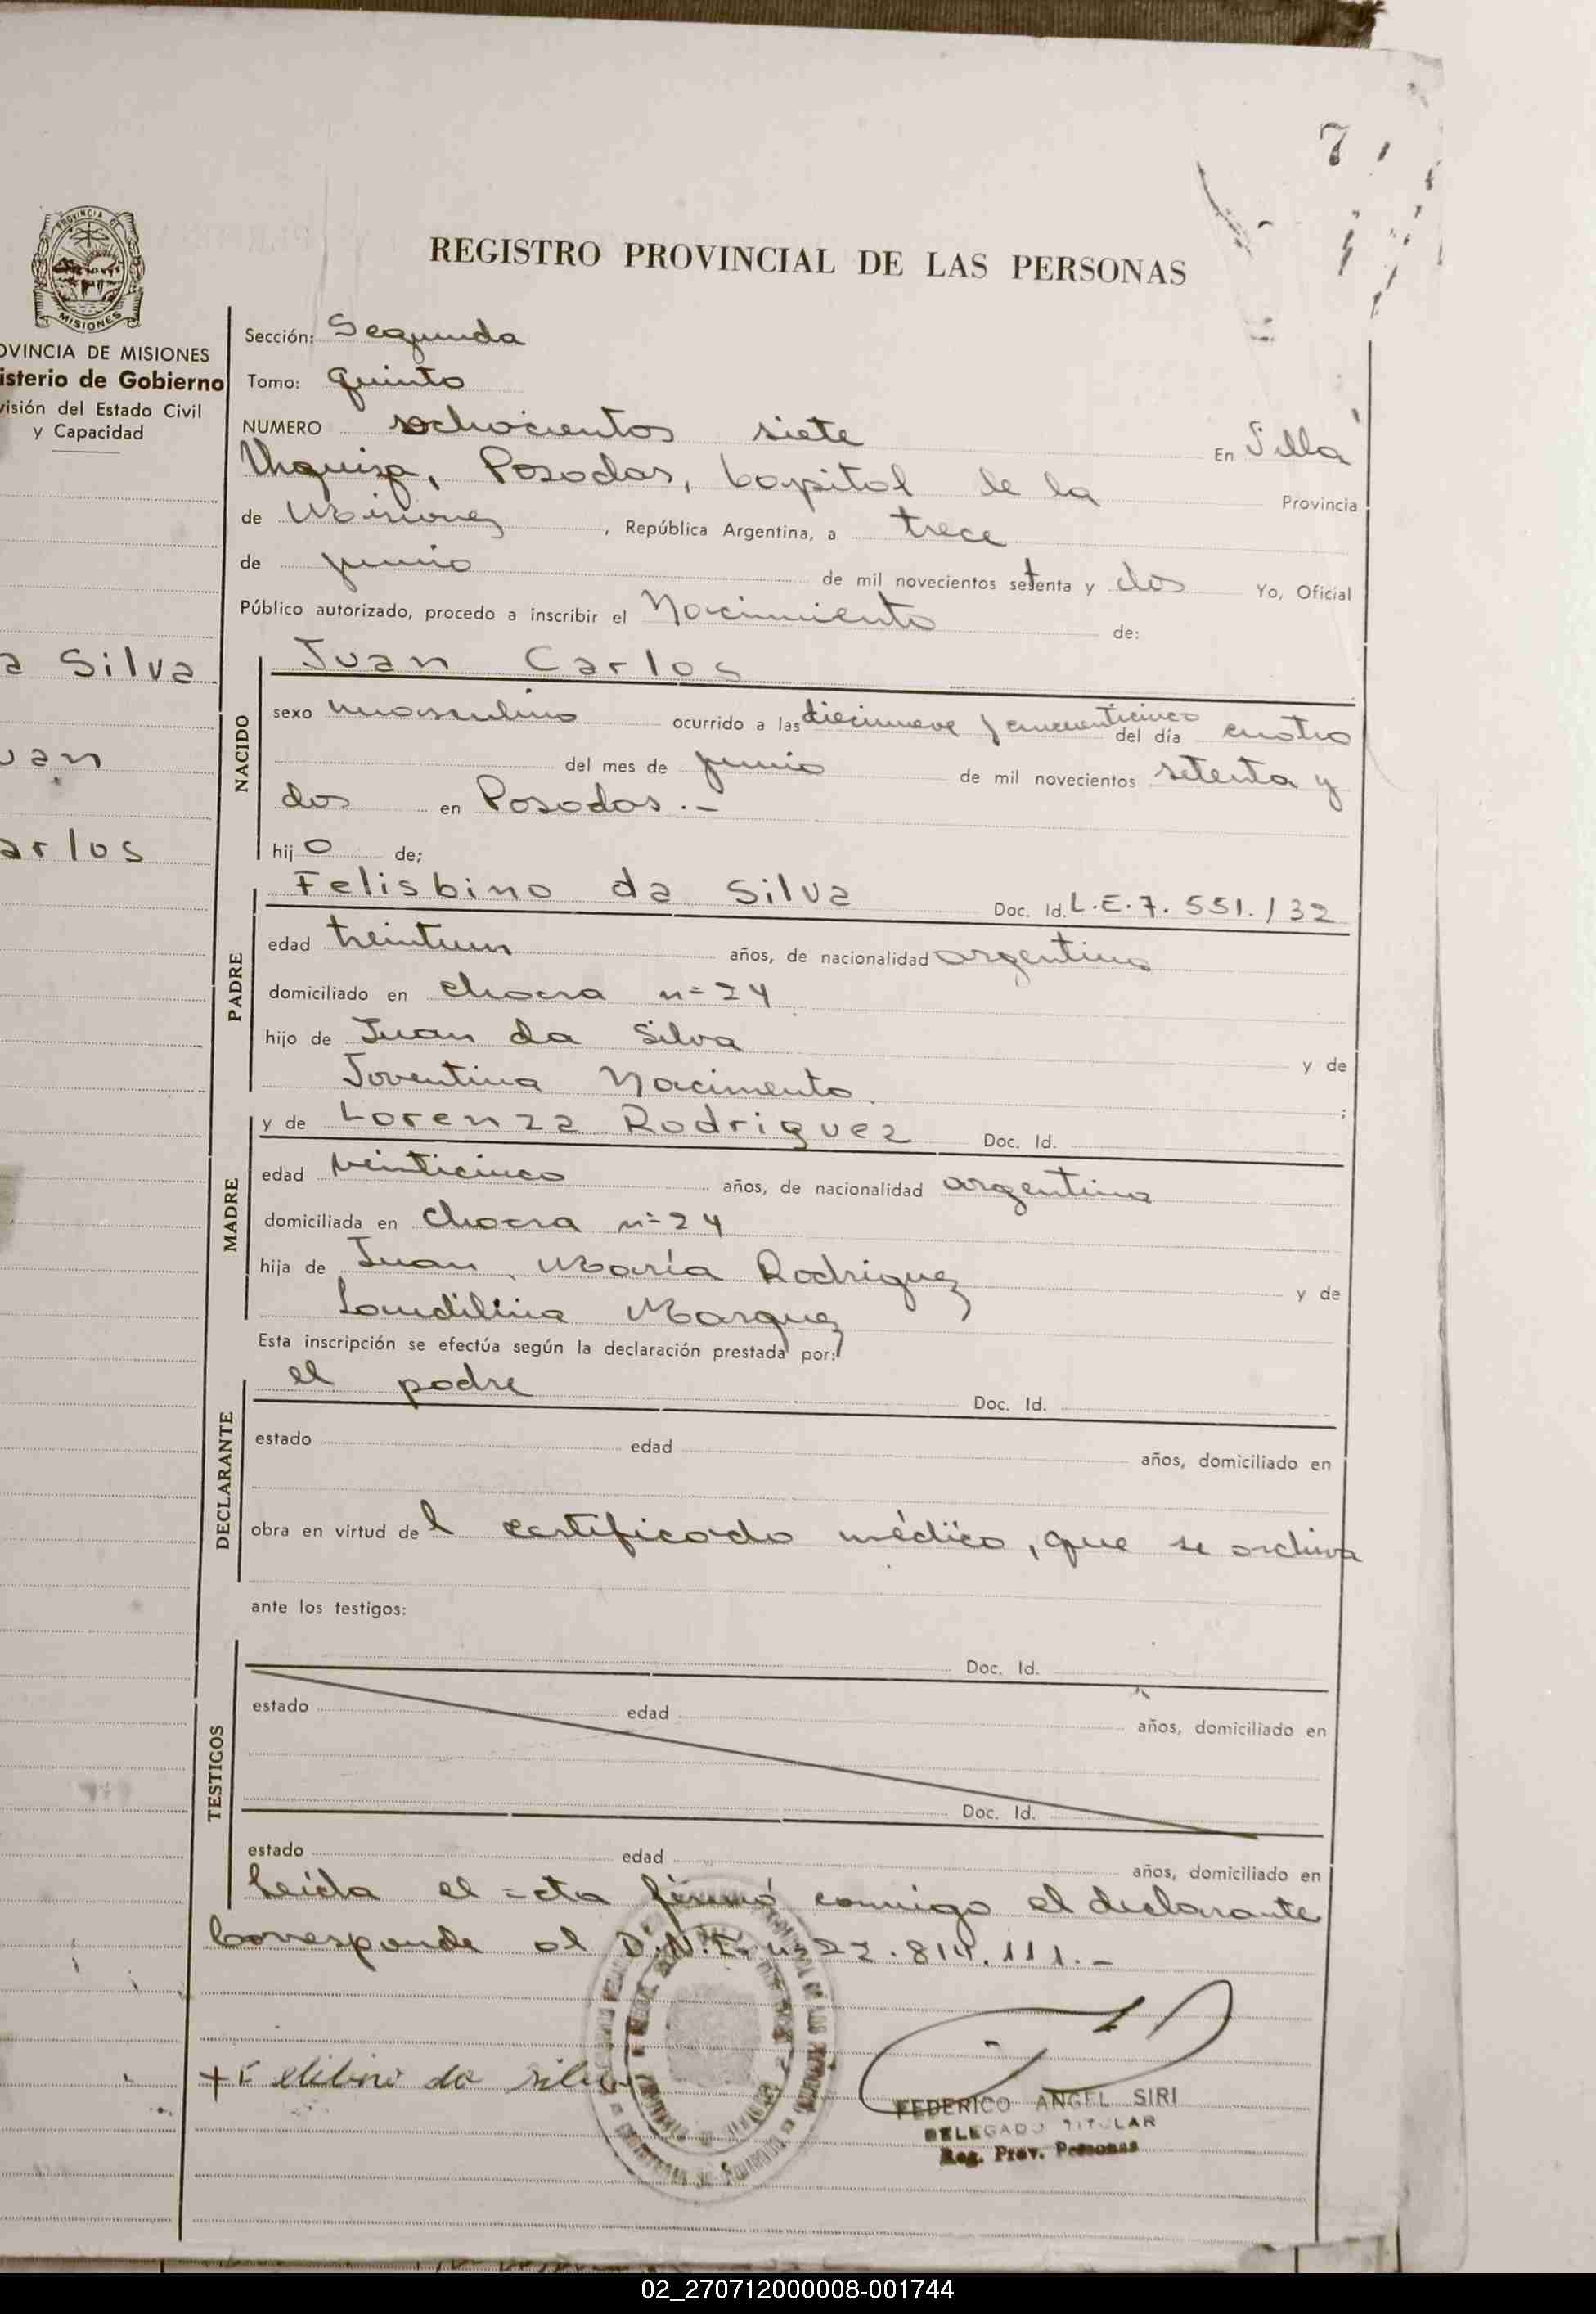 7
REGISTRO PROVINCIAL DE LAS PERSONAS
PROVINCIA DE
MISIONES
OVINCIA DE MISIONES
isterio de Gobierno
visión del Estado Civil
y Capacidad
a Silva
uan
arlos
Sección: Segunda
Tomo: Quinto
NUMERO ochocientos siete En Villa
Urquiza, Posadas, Capital de la Provincia
de Misiones, República Argentina, a trece
de junio de mil novecientos setenta y dos Yo, Oficial
Público autorizado, procedo a inscribir el Nacimiento de:
Juan Carlos
NACIDO
sexo masculino ocurrido a las diecinueve y cincuenticinco del día cuatro
del mes de junio de mil novecientos setenta y
dos en Posadas.-
hijo de;
PADRE
Felisbino da Silva Doc. Id. L.E.7.551.132
edad treintiun años, de nacionalidad argentina
domiciliado en chacra n= 24
hijo de Juan da Silva y de
Joventina Nacimento ;
MADRE
y de Lorenza Rodriguez Doc. Id.
edad veinticinco años, de nacionalidad argentina
domiciliada en chacra n= 24
hija de Juan María Rodriguez y de
Marquez
Esta inscripción se efectúa según la declaración prestada por:
DECLARANTE
el padre Doc. Id.
estado edad años, domiciliado en
obra en virtud del certificado médico, que se archiva
ante los testigos:
TESTIGOS
Doc. Id.
estado edad años, domiciliado en
Doc. Id.
estado edad años, domiciliado en
Leída el acta firmó conmigo el declarante
Corresponde al D.N.I. n= 22.814.111.-
da silva
FEDERICO ANGEL SIRI
DELEGADO TITULAR
Reg. Prov. Personas
02_270712000008-001744